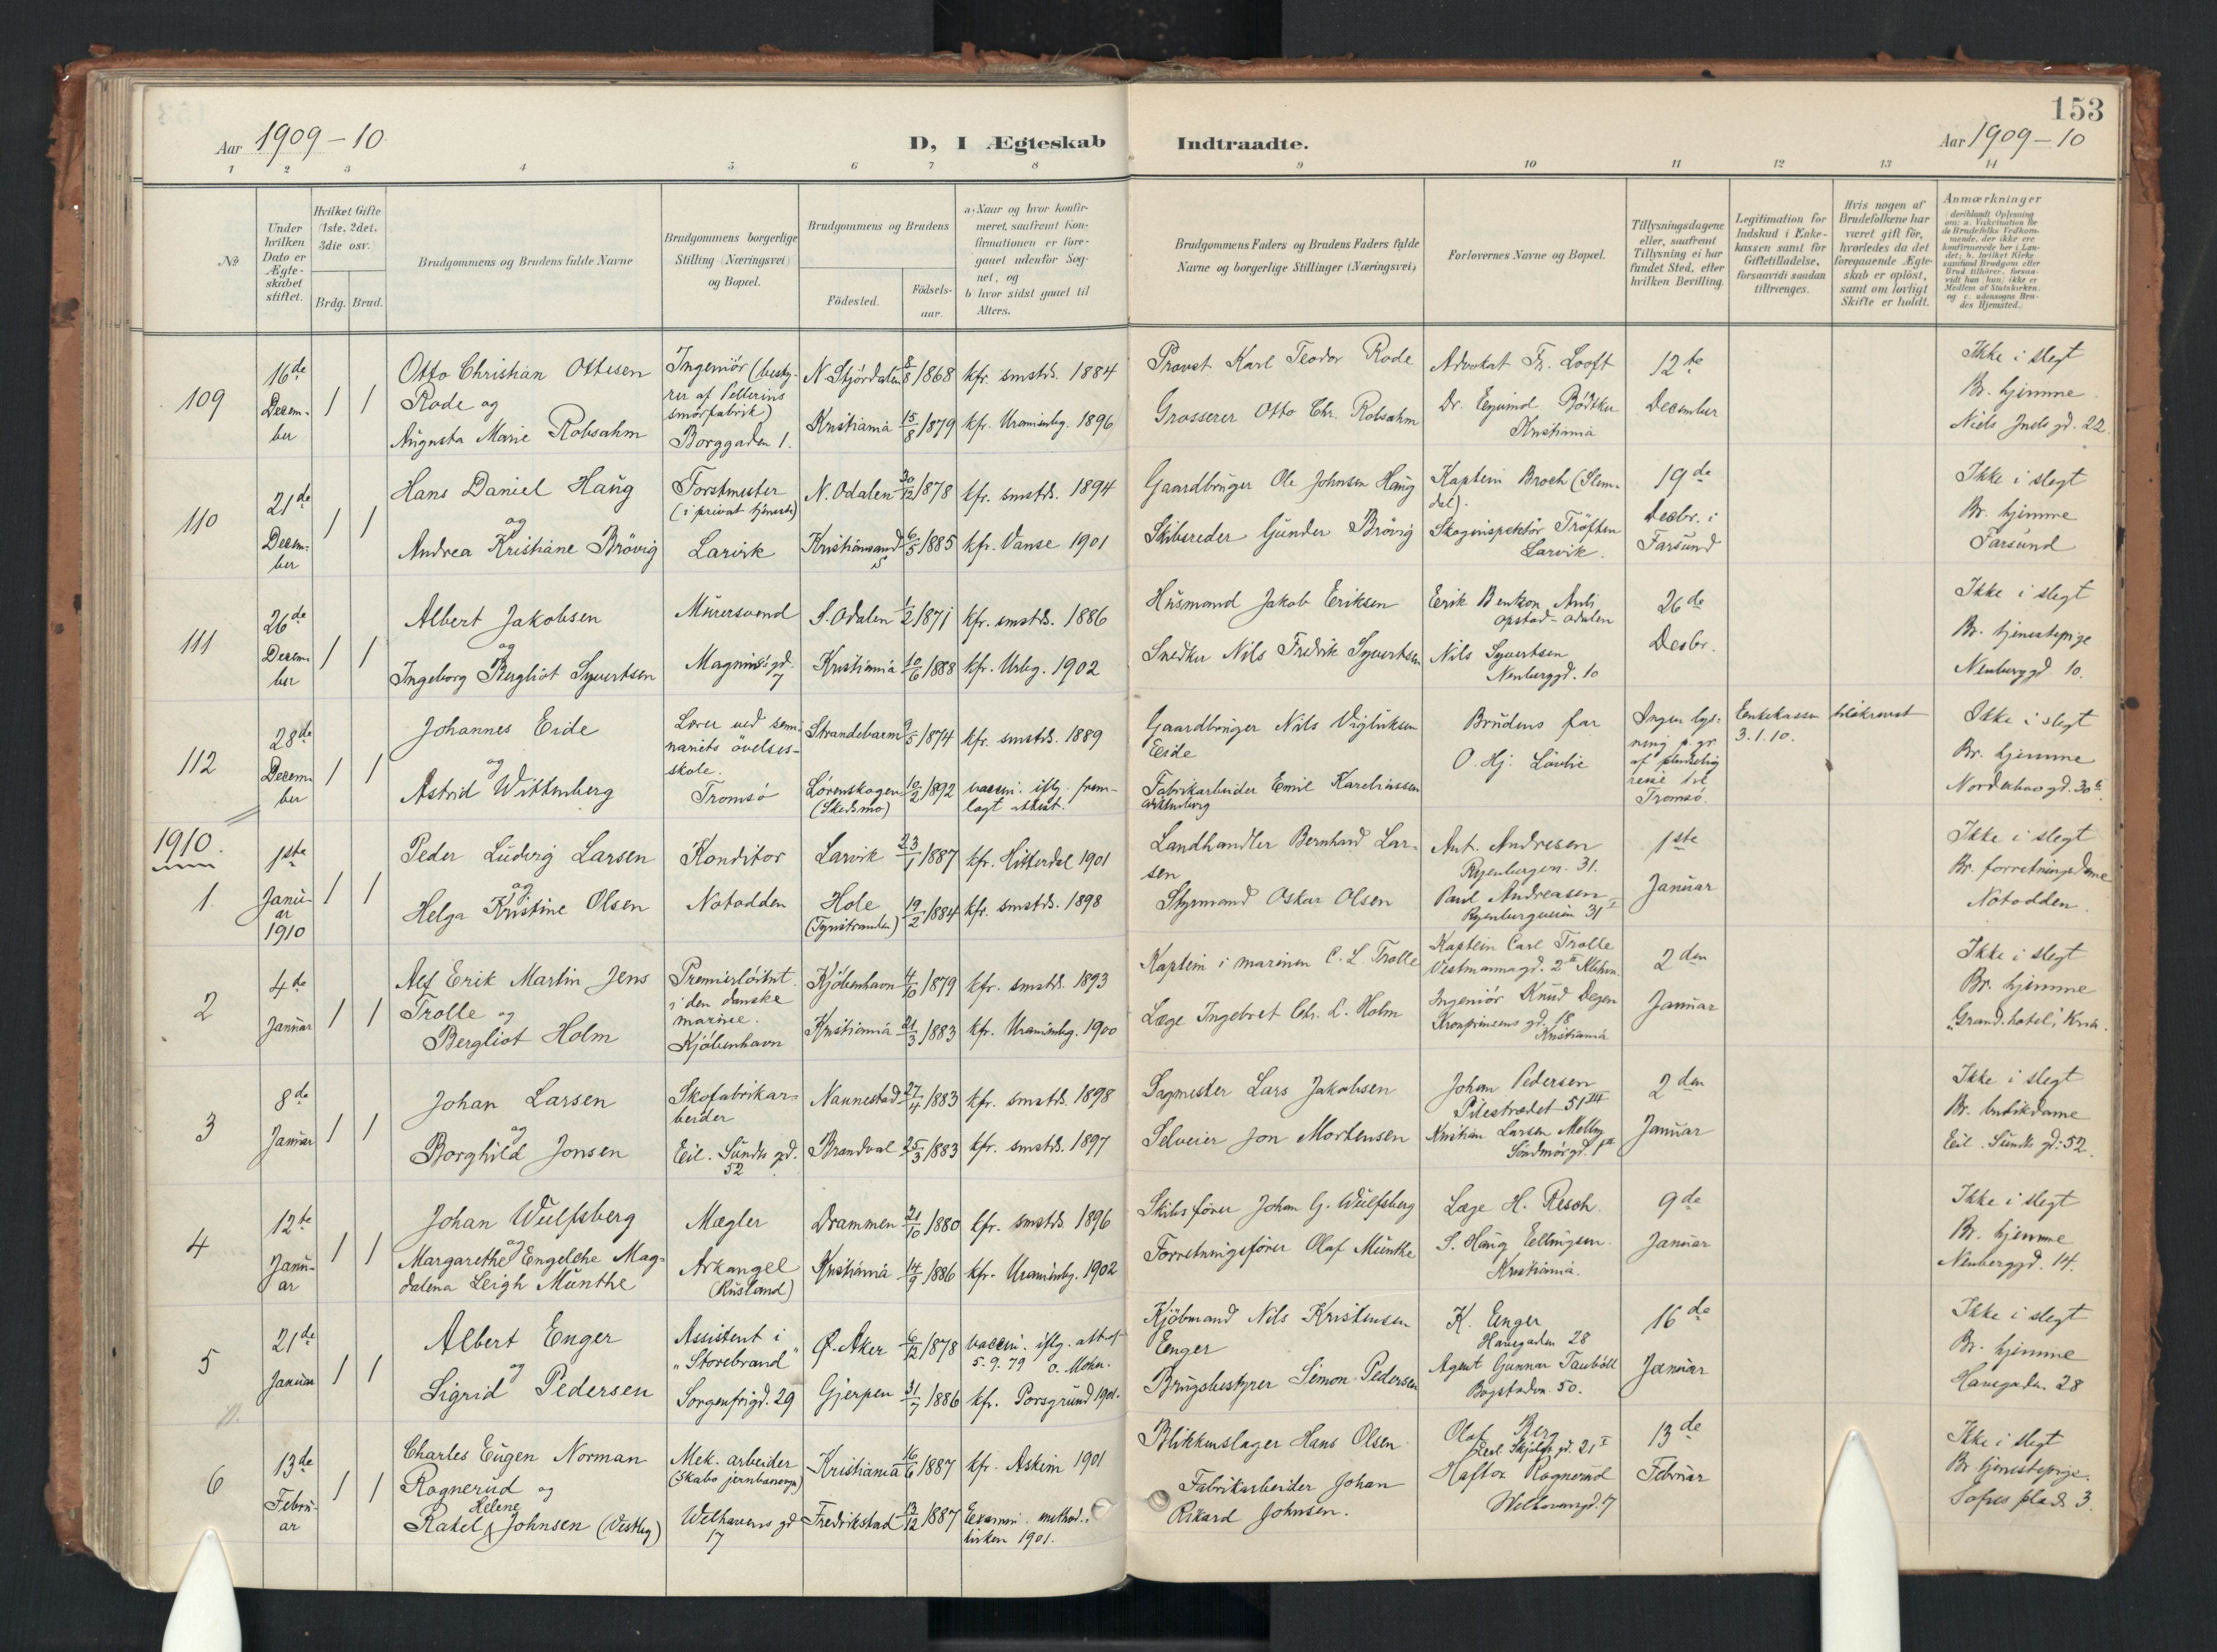 153
Aar 1909-10.
D, I Ægteskab Indtraadte.
Aar 1909-10
1 2 3 4 5 6 7 8 9 10 11 12 13 14
No
Under hvilken Dato er Ægteskabet stiftet.
Hvilket Gifte (1ste, 2det, 3die osv.)
Brdg. Brud.
Brudgommens og Brudens fulde Navne
Brudgommens borgerlige Stilling (Næringsvei) og Bopæl.
Brudgommens og Brudens
Födested.
Födselsaar.
a. Naar og hvor konfirmeret, saafremt Konfirmationen er foregaaet udenfor Sognet, og
b. hvor sidst gaaet til Alters.
Brudgommens Faders og Brudens Faders fulde Navne og borgerlige Stillinger (Næringsvei)
Forlovernes Navne og Bopæl.
Tillysningsdagene eller, saafremt Tillysning ei har fundet Sted, efter hvilken Bevilling.
Legitimation for Indskud i Enkekassen samt for Giftetilladelse, forsaavidt saadan tiltrænges.
Hvis nogen af Brudefolkene har været gift før, hvorledes da det foregaaende Ægteskab er oplöst, samt om lovligt Skifte er holdt.
Anmærkninger
(deriblandt Oplysning om: a. Vakcination for de Brudefolks Vedkommende, der ikke ere konfirmerede her i Landet; b. hvilket Kirkesamfund Brudgom eller Brud tilhører, forsaavidt han (hun) ikke er Medlem af Statskirken, og c. udensogns Brudes Hjemsted.)
109
16de December
1 1
Otto Christian Ottesen
Rode og
Augusta Marie Robsahm
Ingeniör (bestyrer af Pellerins smörfabrik)
Borggaden 1.
N. Stjördalen 8/8 1868 kfr. smstds. 1884
Kristiania 15/8 1879 kfr. Uranienbg. 1896
Provst Karl Teodor Rode
Grosserer Otto Chr. Robsahm
Advokat Fr. Looft
Dr. Eyvind Bödtker
Kristiania
12te
December
Ikke i slegt
Br. hjemme
Niels Juels gd. 22.
110
21de December
1 1
Hans Daniel Haug
og
Andrea Kristiane Brövig
Forstmester
(i privat tjeneste)
Larvik
N. Odalen 30/12 1878 kfr. smstds. 1894
Kristiansand S 6/5 1885 kfr. Vanse 1901
Gaardbruger Ole Johnsen Haug
Skibsreder Gunder Brövig
Kaptein Broch (Slemdal).
Skoginspektör Tröften
Larvik.
19de
Decbr. i
Farsund
Ikke i slegt
Br. hjemme
Farsund
111
26de December
1 1
Albert Jakobsen
og
Ingeborg Bergliot Syvertsen
Murersvend
Magnus's gd. 7
S. Odalen 1/2 1871 kfr. smstds. 1886
Kristiania 10/6 1888 kfr. Urbg. 1902
Husmand Jakob Eriksen
Snedker Nils Fredrik Syvertsen
Erik Bentzon Auli
Opstad - Odalen
Nils Syvertsen
Neuberggd. 10
26de
Decbr.
Ikke i slegt
Br. tjenestepige
Neuberggd 10.
112
28de December
1 1
Johannes Eide
og
Astrid Wittenberg
Lærer ved seminariets övelsesskole.
Tromsö
Strandebarm 9/5 1874 kfr. smstds. 1889
Lörenskogen (Skedsmo) 10/2 1892 vaccin. iflg. fremlagt attest.
Gaardbruger Nils Vigluksen
Eide
Fabrikarbeider Emil Kareliussen
Wittenberg
Brudens far
O. Hj. Lövlie
Ingen lysning p. gr. af pludselig reise til Tromsö.
Enkekassen
3.1.10.
Ikke i slegt
Br. hjemme
Norderhovgd. 30
1910.
1.
1ste
Januar
1910
1 1
Peder Ludvig Larsen
og
Helga Kristine Olsen
Konditor
Notodden
Larvik 23/1 1887 kfr. Hitterdal 1901
Hole (Tyristranden) 19/2 1884 kfr. smstds. 1898
Landhandler Bernhard Larsen
Styrmand Oskar Olsen
Ant. Andresen
Ryenbergen. 31.
Paul Andreasen
Ryenbergveien 31 I
1ste
Januar
Ikke i slegt
Br. forretningsdame
Notodden.
2
4de
Januar
1 1
Alf Erik Martin Jens
Trolle og
Bergliot Holm
Premierlöitnt. i den danske marine.
Kjöbenhavn
Kjöbenhavn 4/10 1879 kfr. smstds. 1893
Kristiania 21/3 1883 kfr. Uranienbg. 1900
Kaptein i marinen C. L. Trolle
Læge Ingebret Chr. L. Holm
Kaptein Carl Trolle
Vestmannagd. 2 Kbhvn.
Ingeniör Knud Degen
Kronprinsens gd. 18
Kristiania
2den
Januar
Ikke i slegt
Br. hjemme
"Grand hotel", Kria.
3
8de
Januar
1 1
Johan Larsen
og
Borghild Jonsen
Skofabrikarbeider
Eil. Sundts gd. 52
Nannestad 27/4 1883 kfr. smstds. 1898
Brandval 25/3 1883 kfr. smstds. 1897
Sagmester Lars Jakobsen
Selveier Jon Mortensen
Johan Pedersen
Pilestrædet 51 III
Kristian Larsen Melby
Söndmörgd. 1a
2den
Januar
Ikke i slegt
Br. butikdame
Eil. Sundts gd. 52.
4
12te
Januar
1 1
Johan Wulfsberg
og
Margarethe Engelche Magdalena Leigh Munthe
Mægler
Arkangel
(Rusland)
Drammen 21/10 1880 kfr. smstds. 1896
Kristiania 14/9 1886 kfr. Uranienbg. 1902
Skibsförer Johan G. Wulfsberg
Forretningsförer Olaf Munthe
Læge H. Resch.
S. Haug Ellingsen
Kristiania.
9de
Januar
Ikke i slegt
Br. hjemme
Neuberggd. 14.
5
21de
Januar
1 1
Albert Enger
og
Sigrid Pedersen
Assistent i
"Storebrand"
Sorgenfrigd. 29
Ø. Aker 6/12 1878 vaccin. iflg. att. af 5.9.79 O. Mohn.
Gjerpen 31/7 1886 kfr. Porsgrund 1901.
Kjöbmand Nils Kristensen
Enger
Brugsbestyrer Simon Pedersen
K. Enger
Havegaden 28
Agent Gunnar Tauböll
Bogstadvn. 50.
16de
Januar
Ikke i slegt
Br. hjemme
Havegaden 28
6
13de
Februar
1 1
Charles Eugen Norman
Rognerud og
Helene
Rakel Johnsen (Vestby)
Mek. arbeider
(Skabo jernbanevgn)
Welhavens gd 17
Kristiania 16/6 1887 kfr. Askim 1901
Fredrikstad 13/12 1887 Examin. method. kirken 1901.
Blikkenslager Hans Olsen
Fabrikarbeider Johan
Rikard Johnsen.
Olaf Berg
Haftor Rognerud
Welhavensgd. 17
13de
Februar
Ikke i slegt
Br. tjenestepige.
Sofies plads 3.